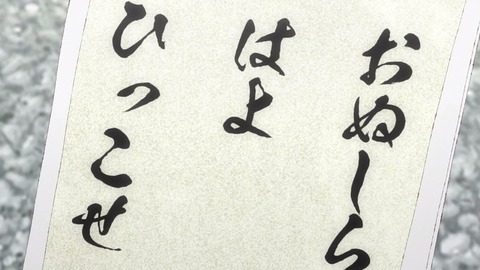 おぬしら
はよ
ひっこせ